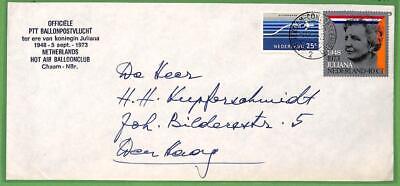 OFFICIËLE
PTT BALLONPOSTVLUCHT
ter ere van koningin Juliana
1948 - 5 sept. - 1973
NETHERLANDS
HOT AIR BALLOONCLUB
Chaam - NBr.
NEDERLAND 25c
1948
1973
JULIANA
NEDERLAND 40 CT
De Heer
H. H. Kupferschmidt
Joh. Bilderstr. 5
Den Haag